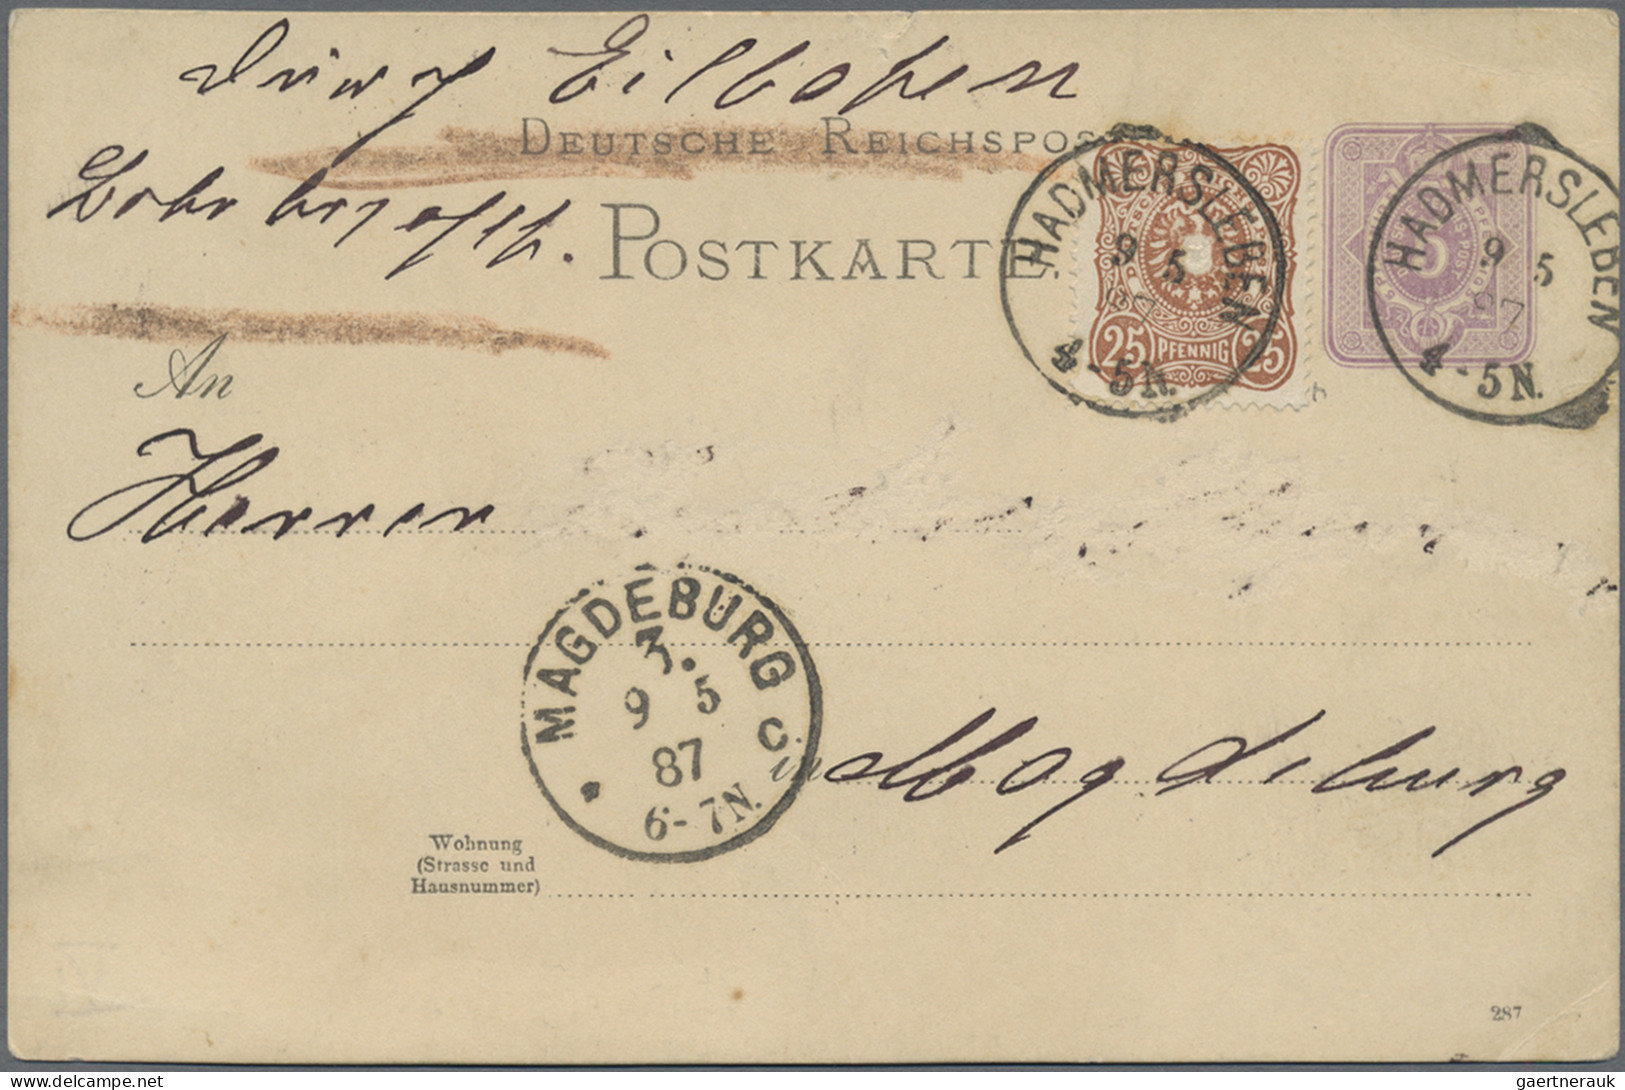 Durch Eilboten
DEUTSCHE REICHSPOST
Bote bezahlt.
POSTKARTE
HADMERSLEBEN
9 5
87
4-5N.
25 PFENNIG 25
HADMERSLEBEN
9 5
87
4-5N.
5
An
Herren
MAGDEBURG
3.
9 5
87
C.
6-7N.
in Magdeburg
Wohnung
(Strasse und
Hausnummer)
287
gaertnerauk